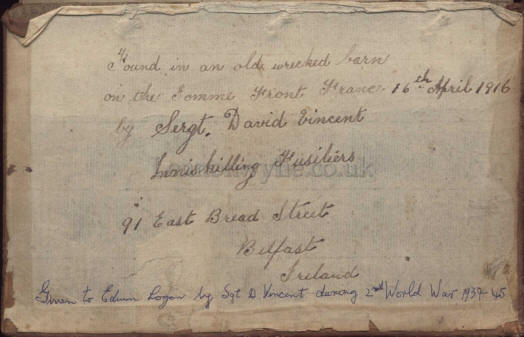 Found in an old wrecked barn
on the Somme Front France 16th April 1916
by Sergt. David Vincent
Inniskilling Fusiliers
91 East Bread Street
Belfast
Ireland
Given to Edwin Logan by Sgt D Vincent during 2nd World War 1939-45